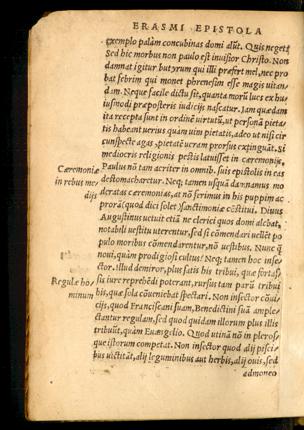 ERASMI EPISTOLA
exemplo palàm concubinas domi alũt. Quis neget?
Sed hic morbus non paulo est inuisior Christo. Non
damnat igitur butyrum qui illi præfert mel, nec pro
bat febrim qui monet phrenesim esse magis uitan-
dam. Neque facile dictu sit, quanta morũ lues ex hu
iusmodi præposteris iudicijs nascatur. Iam quædam
ita recepta sunt in ordinẽ uirtutũ, ut personã pieta-
tis habeant uerius quàm uim pietatis, adeo ut nisi cir
cunspecte agas, pietatẽ ueram prorsus extinguãt. Si
mediocris religionis pestis latuisset in cæremonijs,
Paulus nõ tam acriter in omnib. suis epistolis in eas
destomacharetur. Neq; tamen usquã damnamus mo
deratas cæremonias, at nõ ferimus in his puppim ac
prorã (quod dici solet) sanctimoniæ cõstitui. Diuus
Augustinus uctuit etiã ne clerici quos domi alebat,
notabili uestitu uterentur, sed si cõmendari uellẽt po
pulo moribus cõmendarentur, nõ uestibus. Nunc q̃
noui, quàm prodigiosi cultus? Neq; tamen hoc inse-
ctor. illud demiror, plus satis his tribui, quæ fortas-
sis iure reprehẽdi poterant, rursus tam parũ tribui
his, quæ sola cõueniebat spectari. Non insector cõui
cijs, quod Franciscani suam, Benedictini suã ample
ctantur regulam, sed quod quidam illorum plus illis
tribuũt, quàm Euangelio. Quod utinã nõ in pleros-
que istorum competat. Non insector quod alij pisci-
bus uictitãt, alij leguminibus aut herbis, alij ouis, sed
admoneo
Cæremoniæ
in rebus me
dijs
Regulæ ho
minum